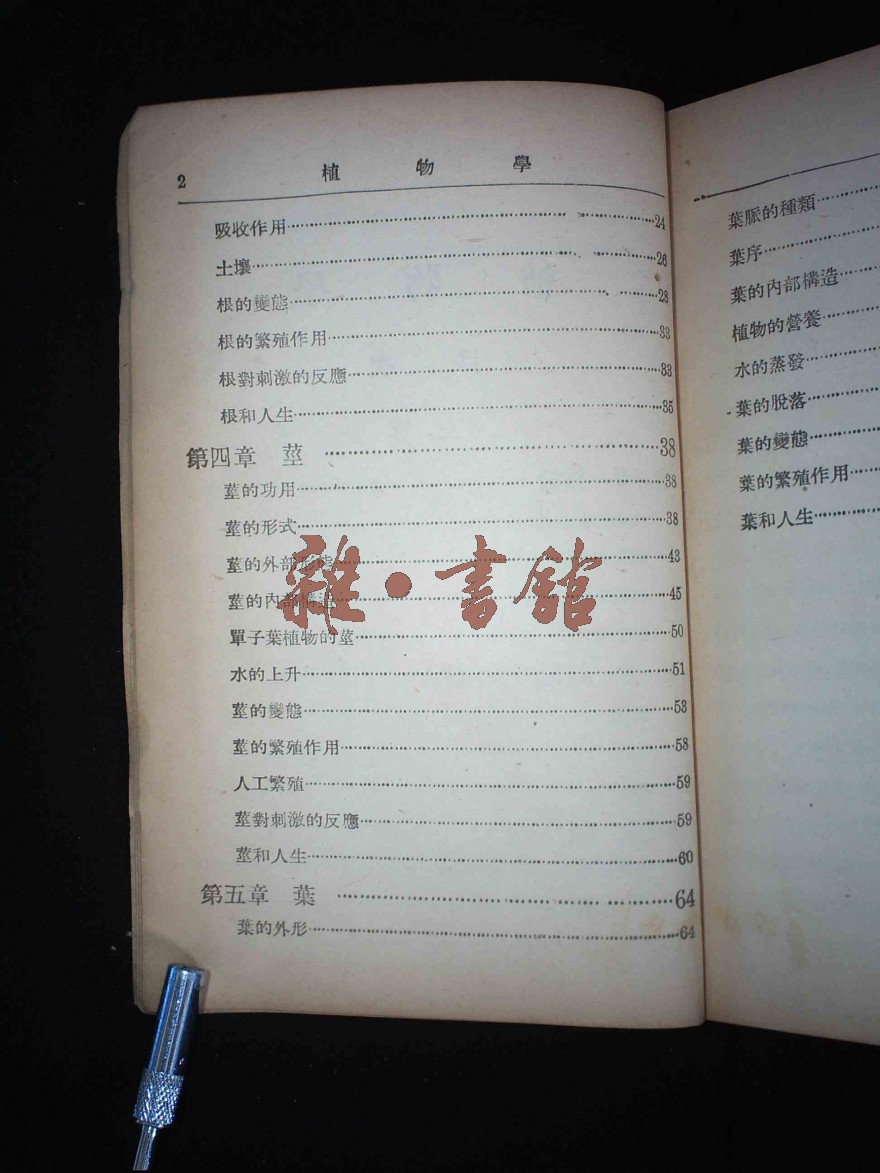 2 植物學
吸收作用……24
土壤……26
根的變態……28
根的繁殖作用……33
根對刺激的反應……33
根和人生……35
第四章 莖……38
莖的功用……38
莖的形式……38
莖的外部形態……43
莖的內部構造……45
單子葉植物的莖……50
水的上升……51
莖的變態……53
莖的繁殖作用……58
人工繁殖……59
莖對刺激的反應……59
莖和人生……60
第五章 葉……64
葉的外形……64
雜·書館
葉脈的種類……
葉序……
葉的內部構造……
植物的營養……
水的蒸發……
葉的脫落……
葉的變態……
葉的繁殖作用……
葉和人生……